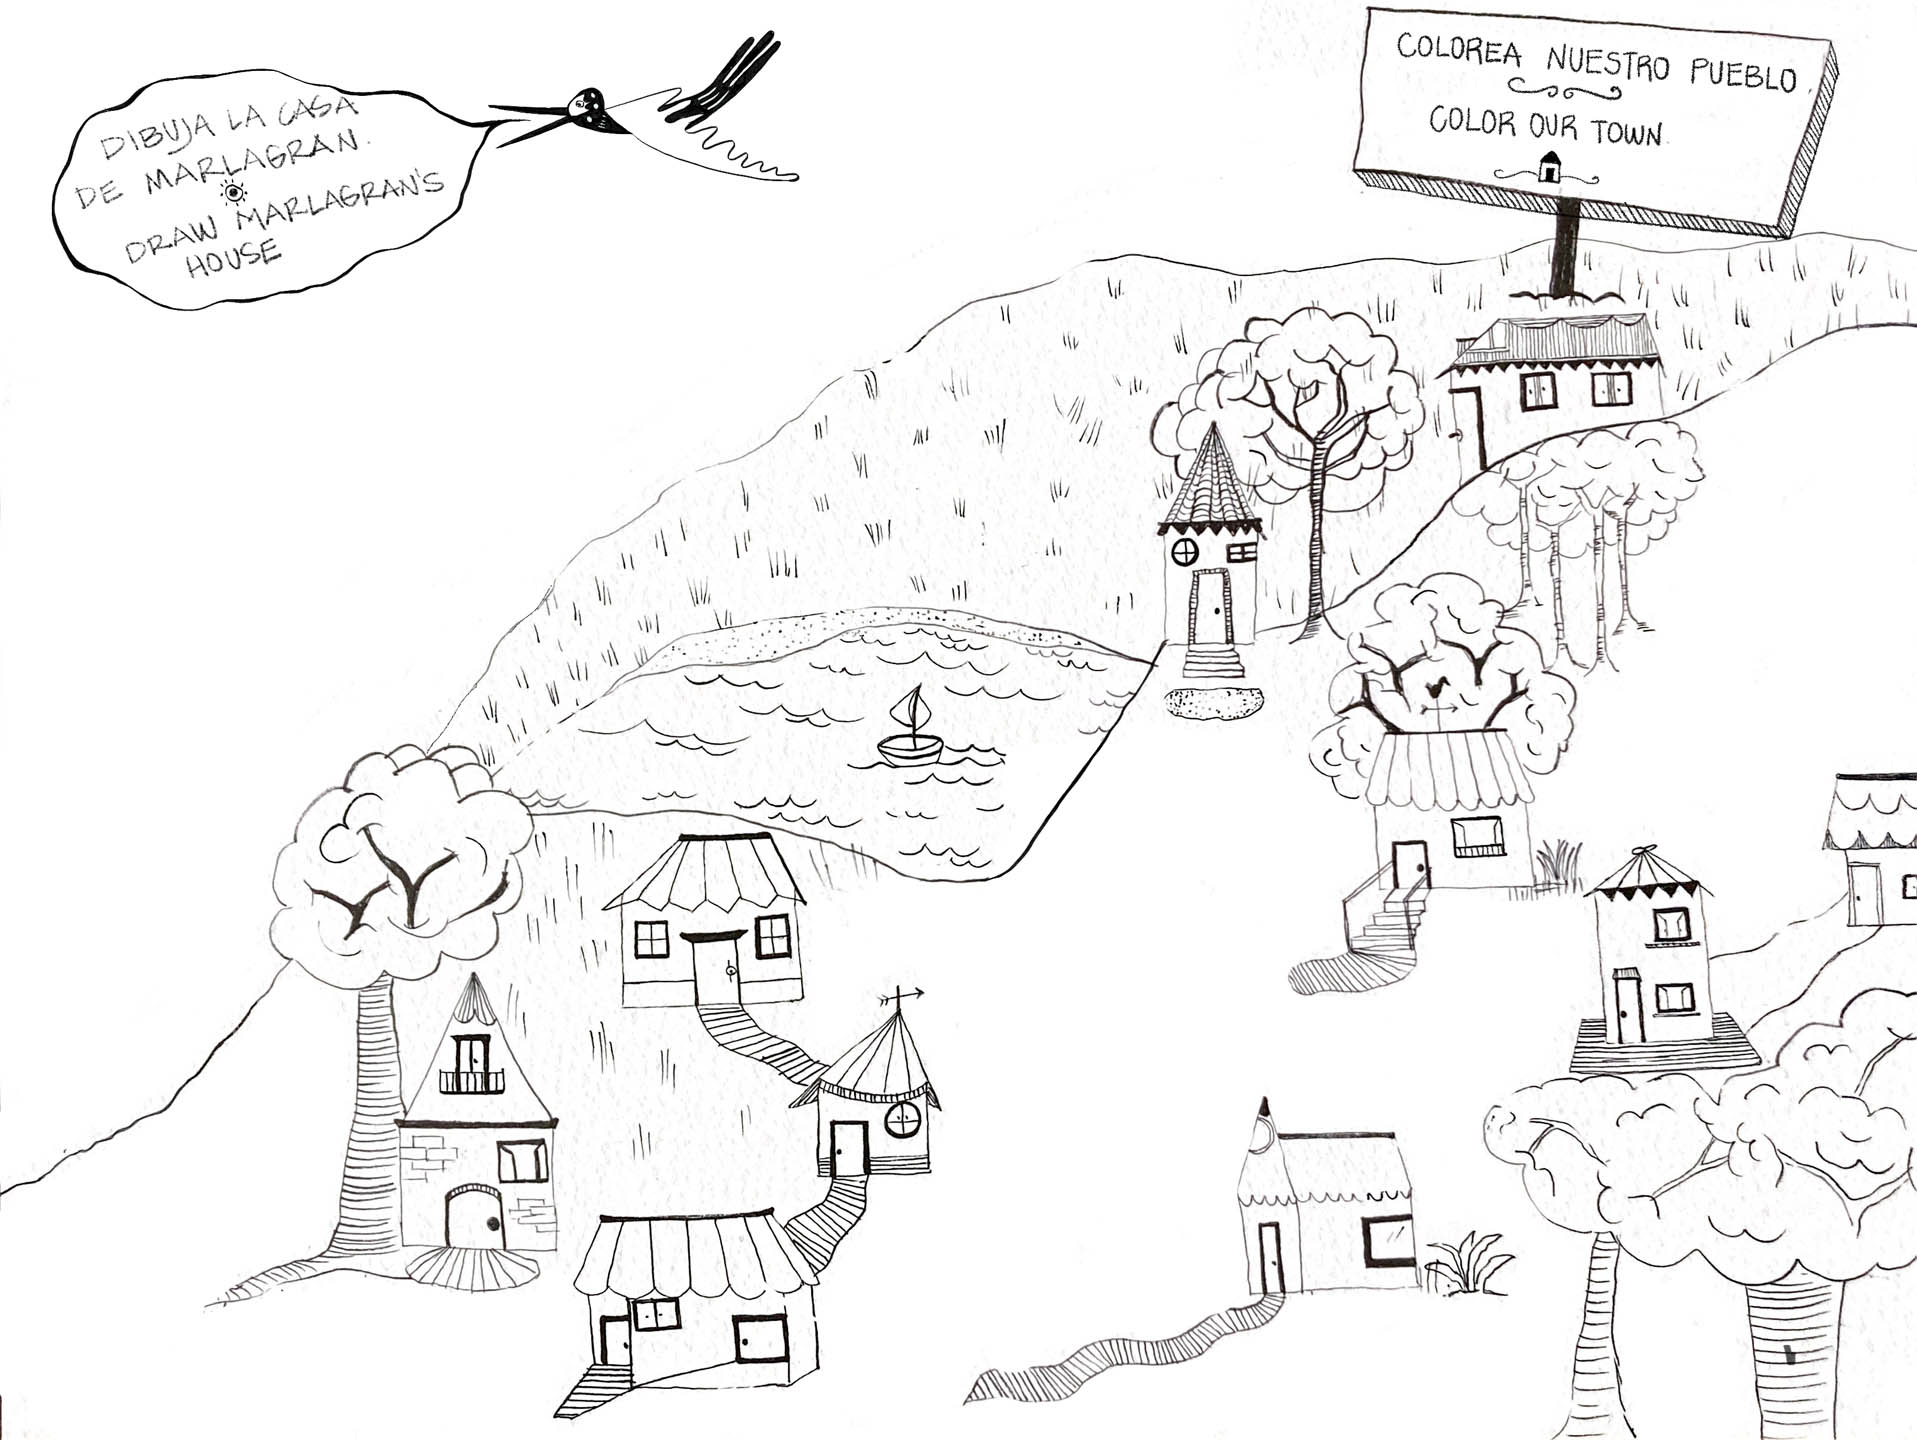 DIBUJA LA CASA
DE MARLAGRÁN.
DRAW MARLAGRAN'S
HOUSE
COLOREA NUESTRO PUEBLO.
COLOR OUR TOWN.